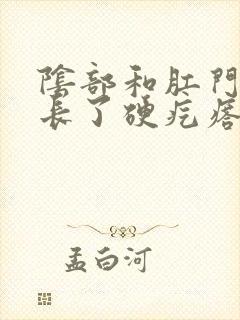 陰部和肛門
長了硬疙瘩
孟白河